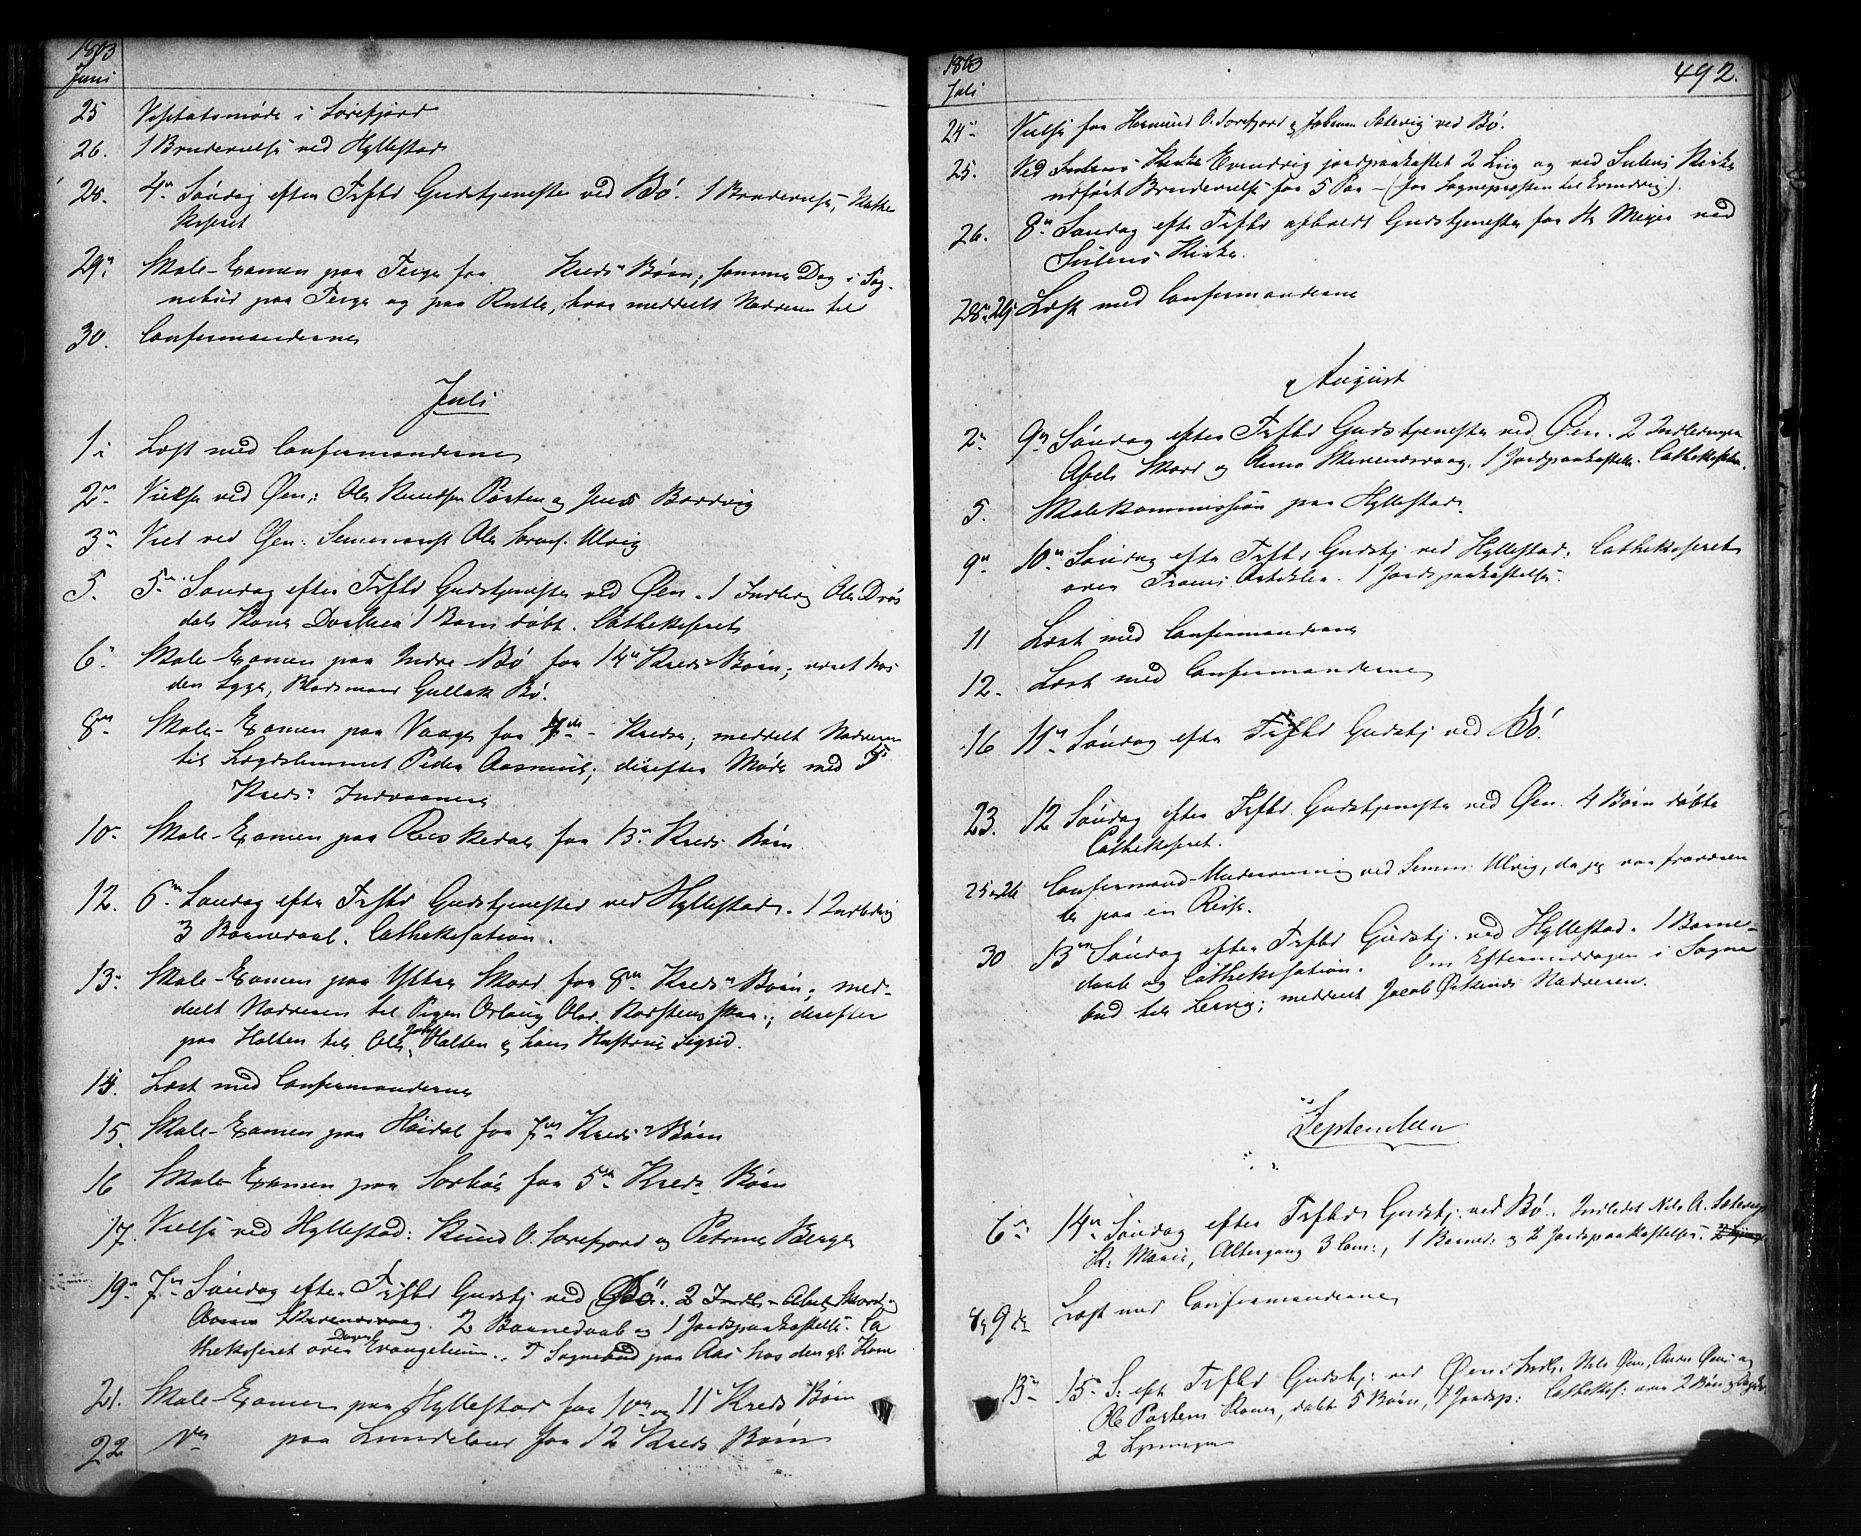 1863
Juni
25 Visitatsmøde i Sørefjord
26. 1 Brudevielse ved Hyllestad
28. 4de Søndag efter Trftd Gudstjeneste ved Bø. 1 Brudevielse, Kathe
kiseret
29de Skole-Examen paa Teige for Kreds Børn; samme Dag i Sog-
nebud paa Teige og paa Rutle, hvor meddelt Nadveren til
30. Confirmanderne
Juli
1. Læst med Confirmanderne
2den Vielse ved Øen: Ole Knudsen Posten og Jens Bordvig
3. Viet ved Øen: Seminarist Ole Ulvig
5. 5te Søndag efter Trftd Gudstjeneste ved Øen. 1 Indledn Ole Drøs
dals Kone Dorthea 1 Barn døbt. Cathekiseret
6. Skole-Examen paa Indre Bø for 14de Kreds Børn; været hos
den syge, Gullak Bø.
8de Skole-Examen paa Vaage for 4de Kreds; meddelt Nadveren
til Lægdslemmet Peder Aasmul; derefter Møde med 5te
Kreds Indvaanere
10. Skole-Examen paa Risledal for 13. Kreds Børn.
12. 6te Søndag efter Trftd Gudstjeneste ved Hyllestad. 1 Indledn
3 Barnedaab. Cathekisation.
13. Skole-Examen paa Ytter Skord for 8de Kreds Børn; med-
deelt Nadveren til Pigen Orlaug Olsd. derefter
paa Holten til Ole Joh. Holten og hans Hustrue Sigrid.
14. Læst med Confirmanderne
15. Skole-Examen paa Høidal for 7de Kreds Børn
16 Skole-Examen paa Sørbøe for 5te Kreds Børn
17. Vielse ved Hyllestad: Knud O. Sørefjord og Petrine Berge
19. 7de Søndag efter Trftd Gudstj ved Bø. 2 Indl. Abel Skord og
Anna Skivenesvaag. 2 Barnedaab og 1 Jordpaakastelse. Ca
thekiseret over Dagens Evangelium. I Sognebud paa Aas hos den gl. Kone
21. Skole-Examen paa Hyllestad for 10de og 11te Kreds Børn
22 Do paa Lundeland for 12 Kreds Børn
1863 492.
Juli
24. Vielse for Hermund O. Sørefjord og Johanne Sætevig ved Bø.
25. Ved Sulens Kirke Evindvig jordpaakastet 2 Liig og ved Sulens Kirke
udført Brudevielse for 5 Par – (for Sognepresten til Evindvig).
26. 8de Søndag efter Trftd afholdt Gudstjeneste for Hr Meyer ved
Sulens Kirke.
28 og 29 Læst med Confirmanderne
August
2. 9de Søndag efter Trftd Gudstjeneste ved Øen. 2 Indledninger
Abels Skord og Anna Skivenesvaag. 1 Jordpaakastelse. Cathekiseren.
5. Skolekommission paa Hyllestad.
9de 10de Søndag efter Trftd Gudstj ved Hyllestad. Cathekiseret
over Troens Artikler. 1 Jordpaakastelse.
11 Læst med Confirmanderne
12. Læst med Confirmanderne
16 11te Søndag efter Trftd Gudstj ved Bø.
23. 12 Søndag efter Trftd. Gudstjeneste ved Øen. 4 Børn døbte
Cathekiseret.
25 og 26 Confirmand-Underviisning ved Semin: Ulvig, da jeg var fraværen
de paa en Reise.
30 13de Søndag efter Trftd Gudstj. ved Hyllestad. 1 Barne-
daab og Cathekisation. Om Eftermiddagen i Sogne
bud til Lervig; meddeelt Jacob Nadveren.
September
6. 14de Søndag efter Trftd Gudstj. ved Bø. Indledet Nils A. Sætevigs
K. Marie, Altergang 3 Com:, 1 Barned: og 2 Jordpaakastelser.
8 og 9de Læst med Confirmanderne
13. 15. S. eft Trftd Gudstj: ved Øen: Indl. Nils Øen, Anders Øens og
Ole Postens Koner, døbt 5 Børn, 1 Jordsp: Cathekis:
2 Lysninger